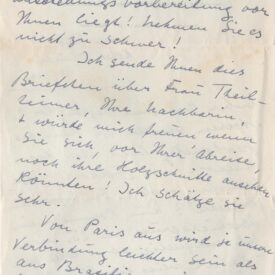 Ihnen liegt! Nehmen Sie es
nicht zu schwer!
Ich sende Ihnen dies
Briefchen über Frau Theil-
heimer, Ihre Nachbarin,
+ würde mich freuen wenn
Sie sich, vor Ihrer Abreise,
noch ihre Holzschnitte ansehen
könnten! Ich schätze sie
sehr.
Von Paris aus wird ja unsere
Verbindung leichter sein als
aus Brasilien